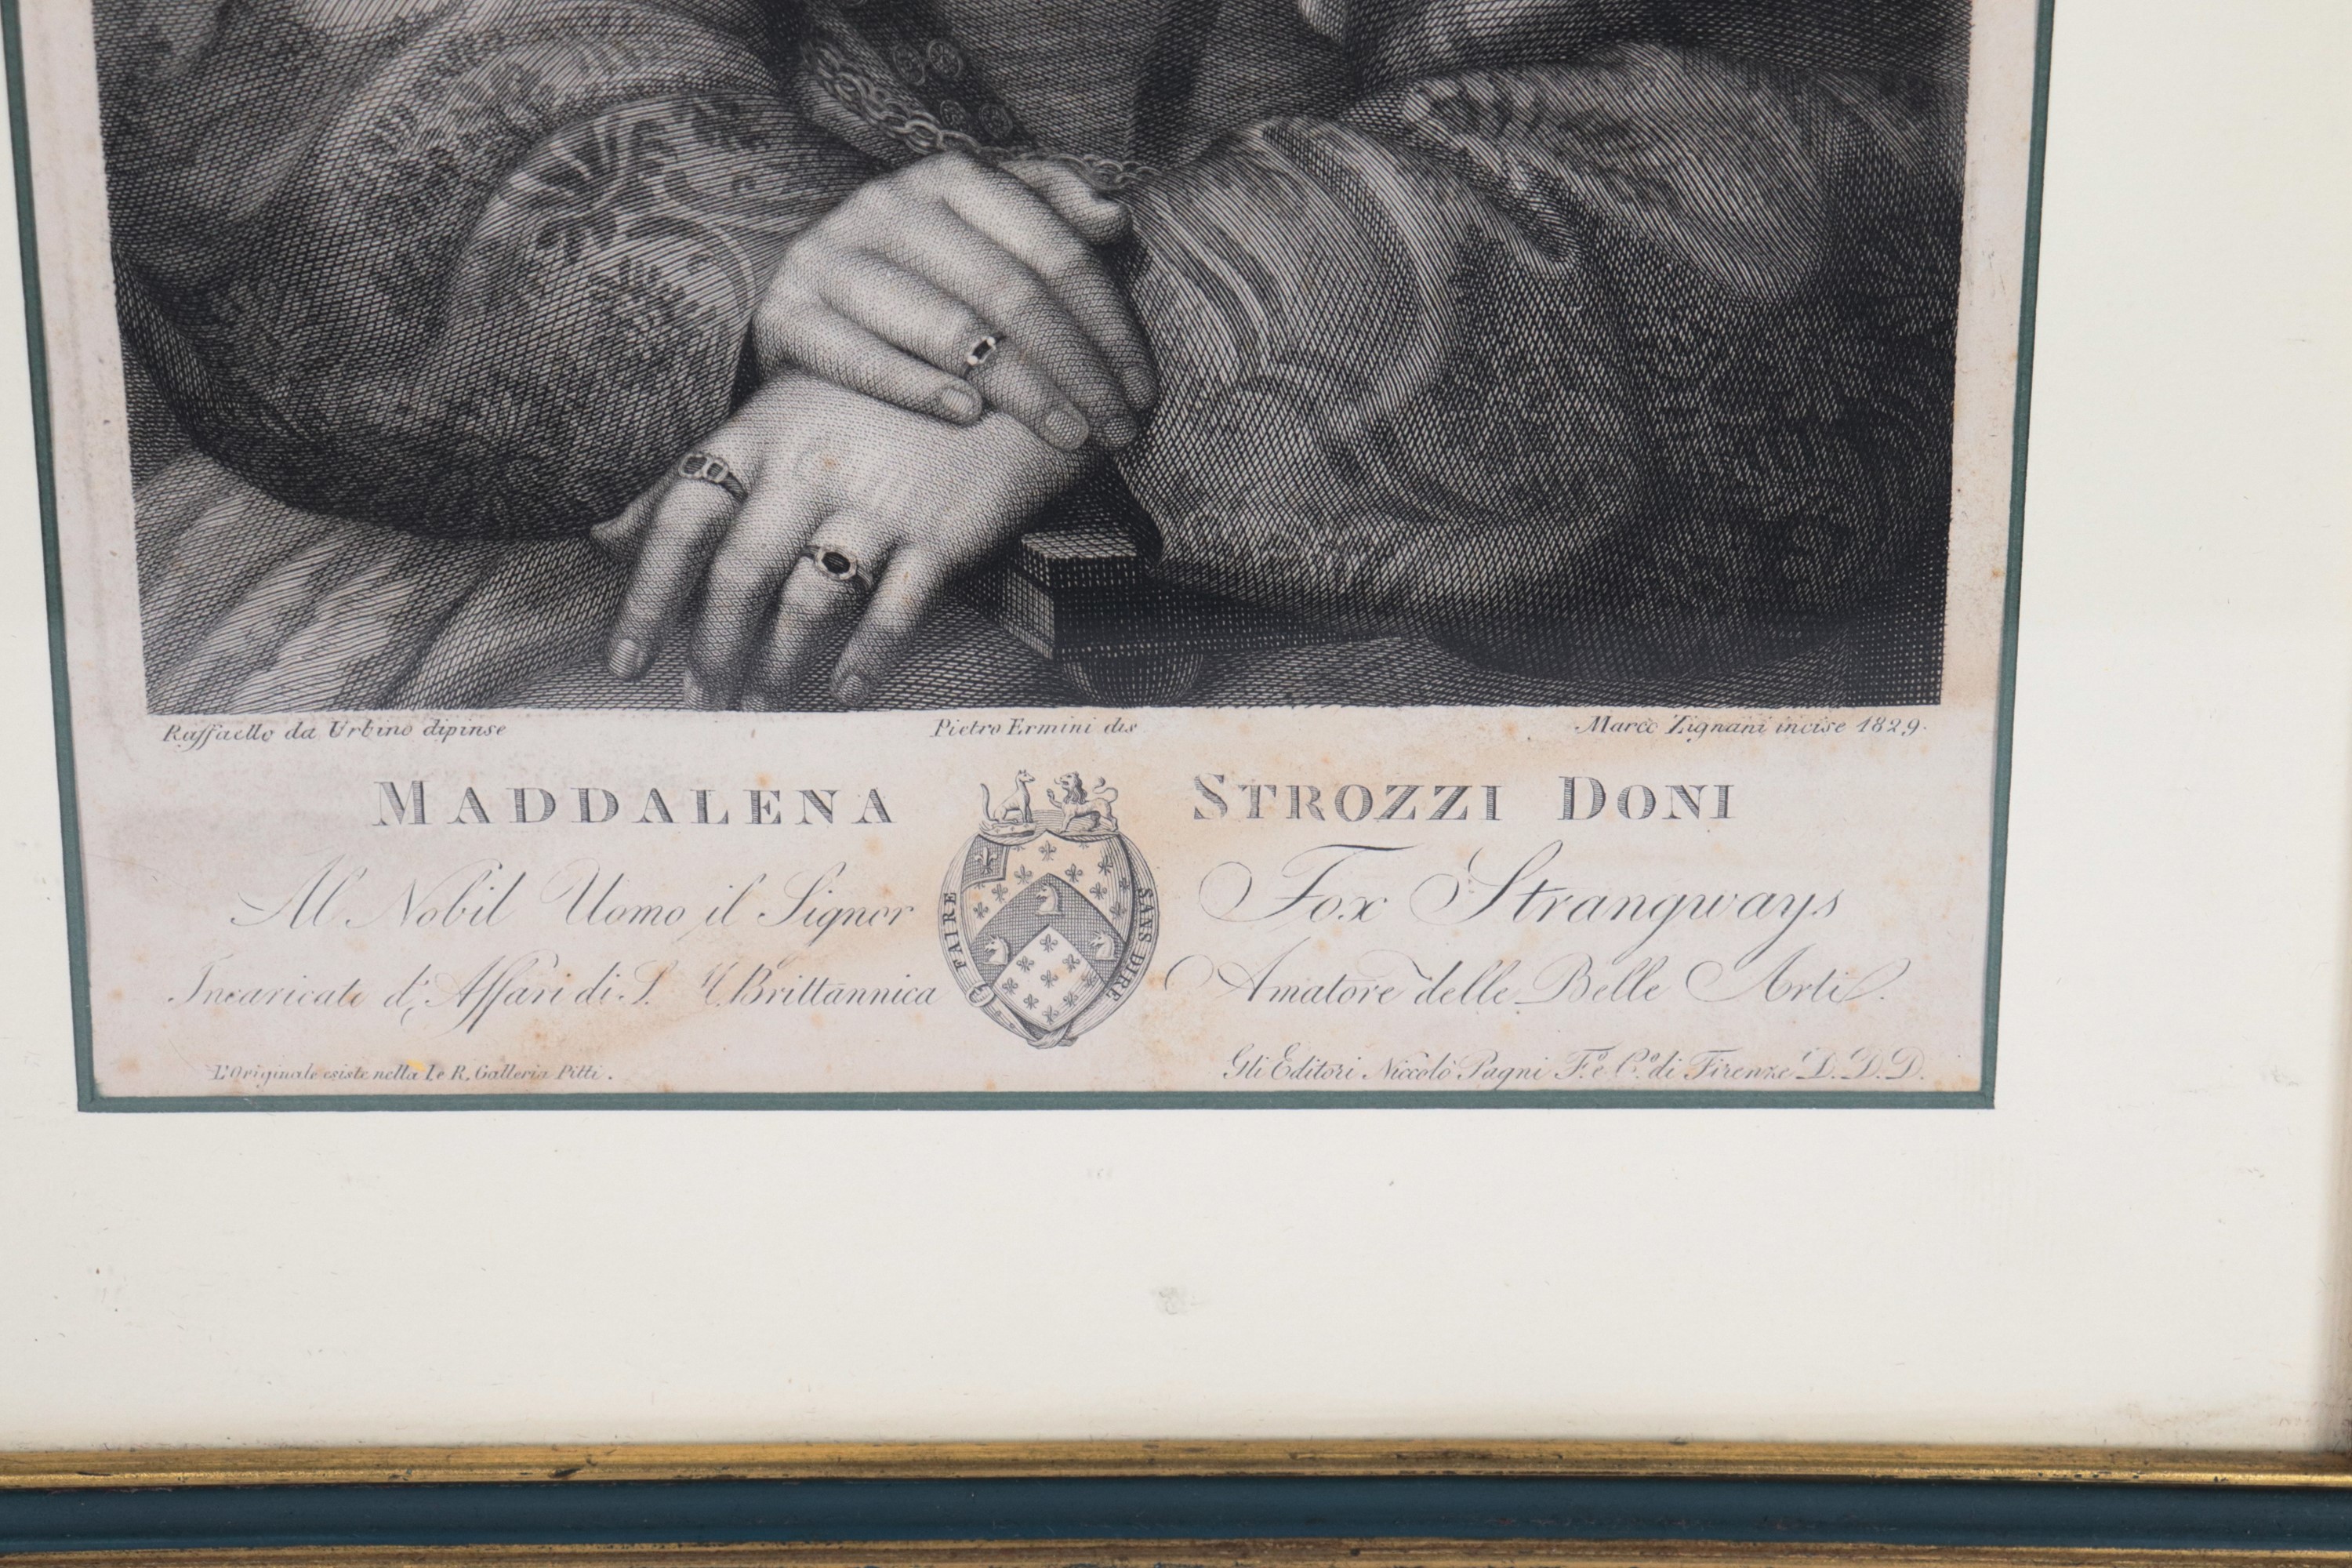 Raffaello da Urbino dipinse Pietro Ermini dis Marco Zignani incise 1829.
MADDALENA STROZZI DONI
Al Nobil Uomo il Signor Fox Strangways
FAIRE SANS DIRE
Incaricato d'Affari di S. M. Brittannica Amatore delle Belle Arti.
L'Originale esiste nella I. e R. Galleria Pitti.
Gli Editori Niccolò Pagni F.o e C.o di Firenze D. D. D.